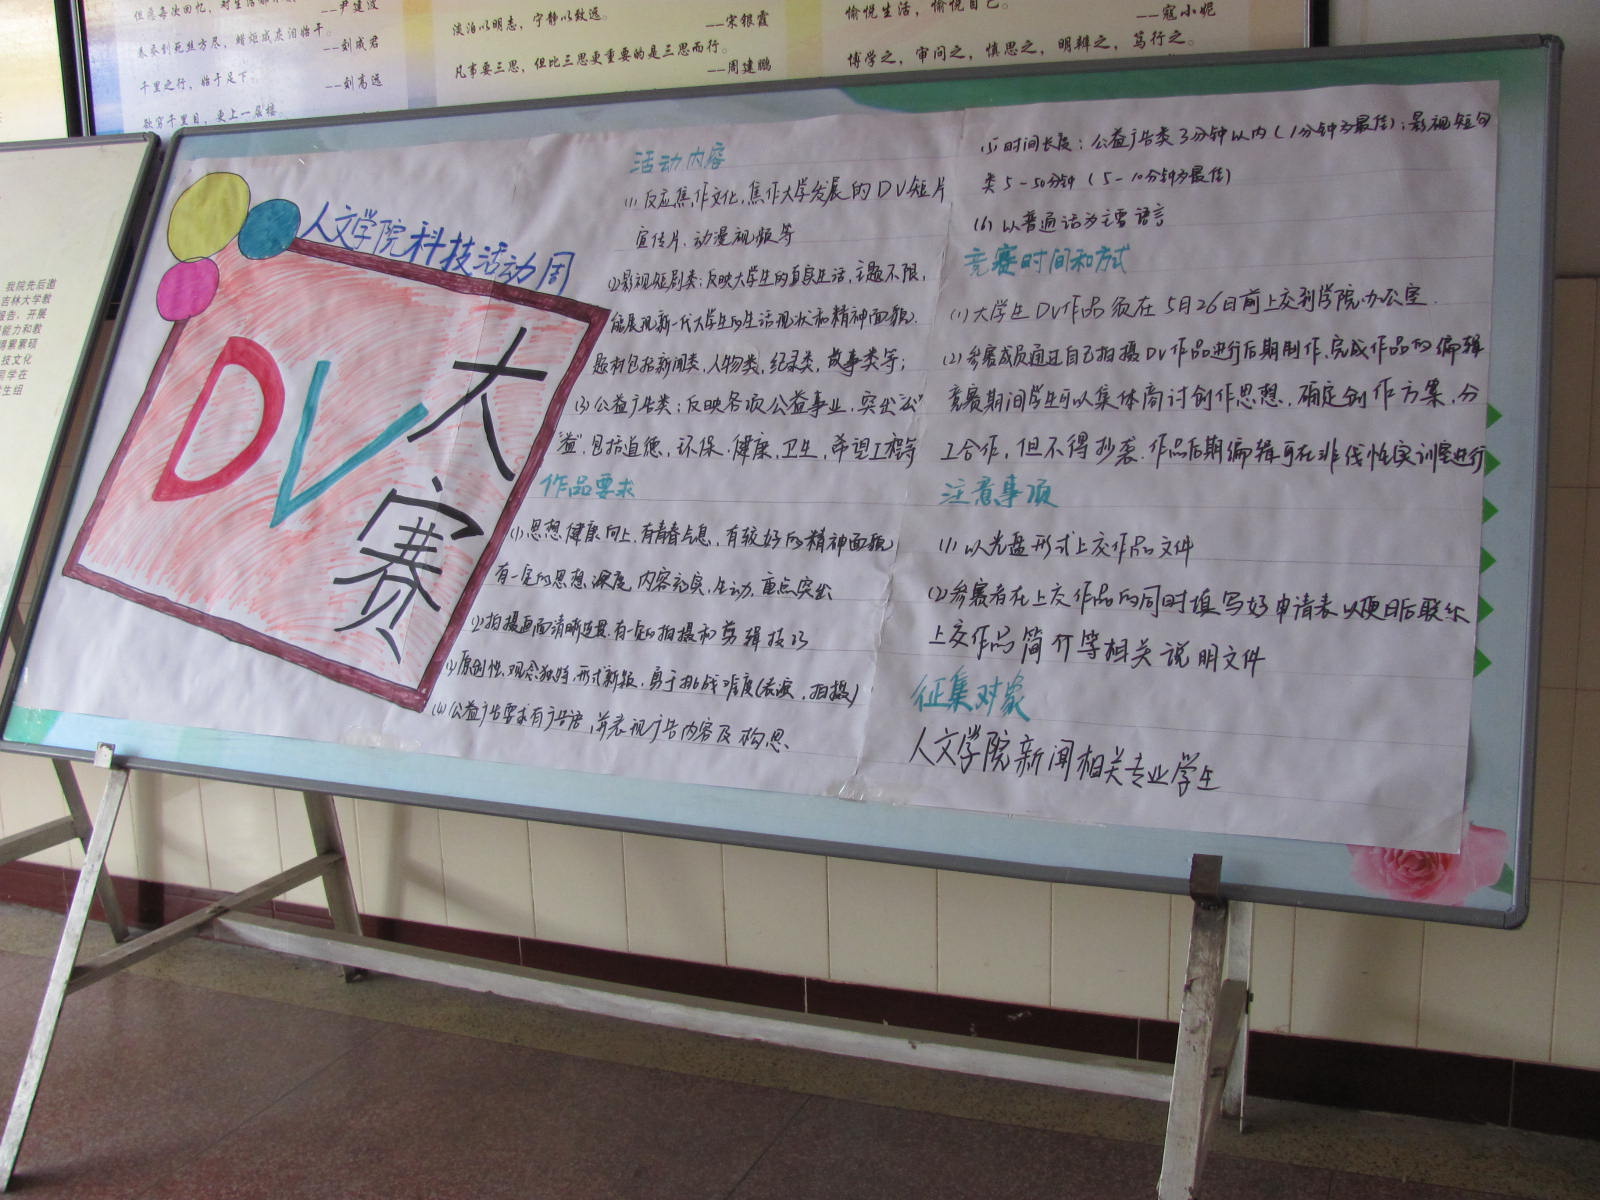 但愿每次回忆，对生活都
——尹建波
春蚕到死丝方尽，蜡炬成灰泪始干。
——刘成君
千里之行，始于足下。
——刘高远
欲穷千里目，更上一层楼。
淡泊以明志，宁静以致远。
——宋银霞
凡事要三思，但比三思更重要的是三思而行。
——周建鹏
愉悦生活，愉悦自己。
——寇小妮
博学之，审问之，慎思之，明辨之，笃行之。
我院先后邀
吉林大学教
报告，开展
能力和教
得累累硕
技文化
同学在
学生组
人文学院科技活动周
DV大赛
活动内容
(1)反应焦作文化，焦作大学发展的DV短片
宣传片，动漫视频等
(2)影视短剧类：反映大学生的真实生活，主题不限，
能展现新一代大学生的生活现状和精神面貌，
题材包括新闻类，人物类，纪录类，故事类等；
(3)公益广告类：反映各项公益事业，突出“公
益”，包括道德，环保，健康，卫生，希望工程等
作品要求
(1)思想健康向上，有青春气息，有较好的精神面貌
有一定的思想深度，内容充实，生动，重点突出
(2)拍摄画面清晰连贯，有一定的拍摄和剪辑技巧
(3)原创性，观念独特，形式新颖，勇于挑战难度(表演，拍摄)
(4)公益广告要求有广告语，并表现广告内容及构思
(5)时间长度：公益广告类3分钟以内(1分钟为最佳)；影视短句
类5-50分钟(5-10分钟为最佳)
(6)以普通话为主要语言
竞赛时间和方式
(1)大学生DV作品须在5月26日前上交到学院办公室.
(2)参赛成员通过自己拍摄DV作品进行后期制作，完成作品的编辑
竞赛期间学生可以集体商讨创作思想，确定创作方案，分
工合作，但不得抄袭.作品后期编辑可在非线性实训室进行
注意事项
(1)以光盘形式上交作品文件
(2)参赛者在上交作品的同时填写好申请表以便日后联系
上交作品简介等相关说明文件
征集对象
人文学院新闻相关专业学生